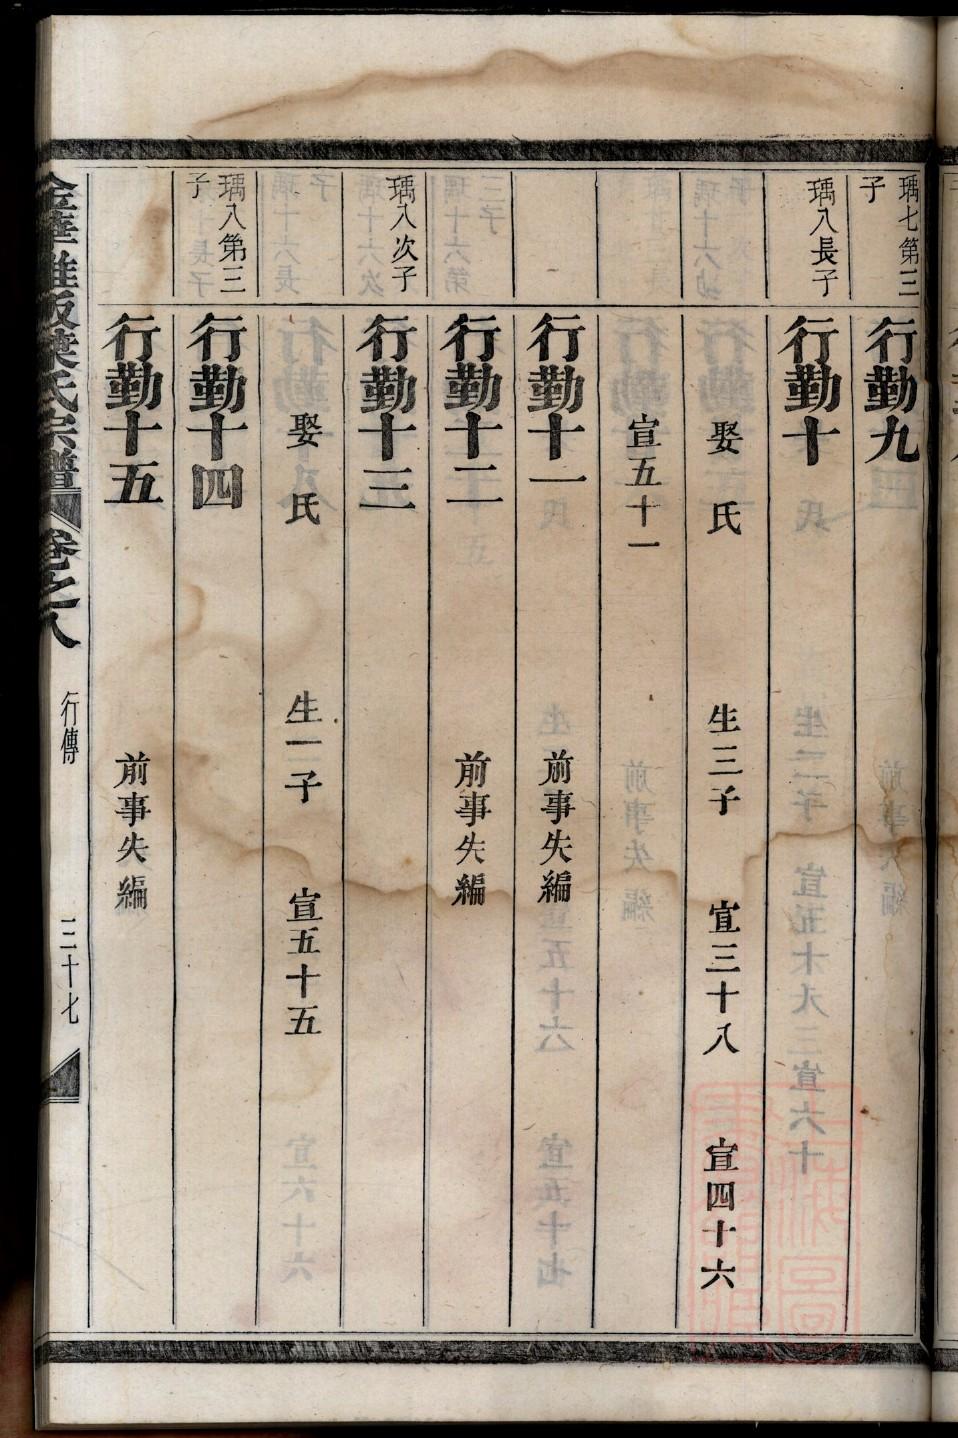 瑀七第三
子
行勤九
瑀八長子
行勤十
娶 氏 生三子 宣三十八 宣四十六
宣五十一
行勤十一 前事失編
行勤十二 前事失編
瑀八次子
行勤十三
娶 氏 生一子 宣五十五
瑀八第三
子
行勤十四
行勤十五 前事失編
葉氏宗譜 卷之八 行傳 三十七